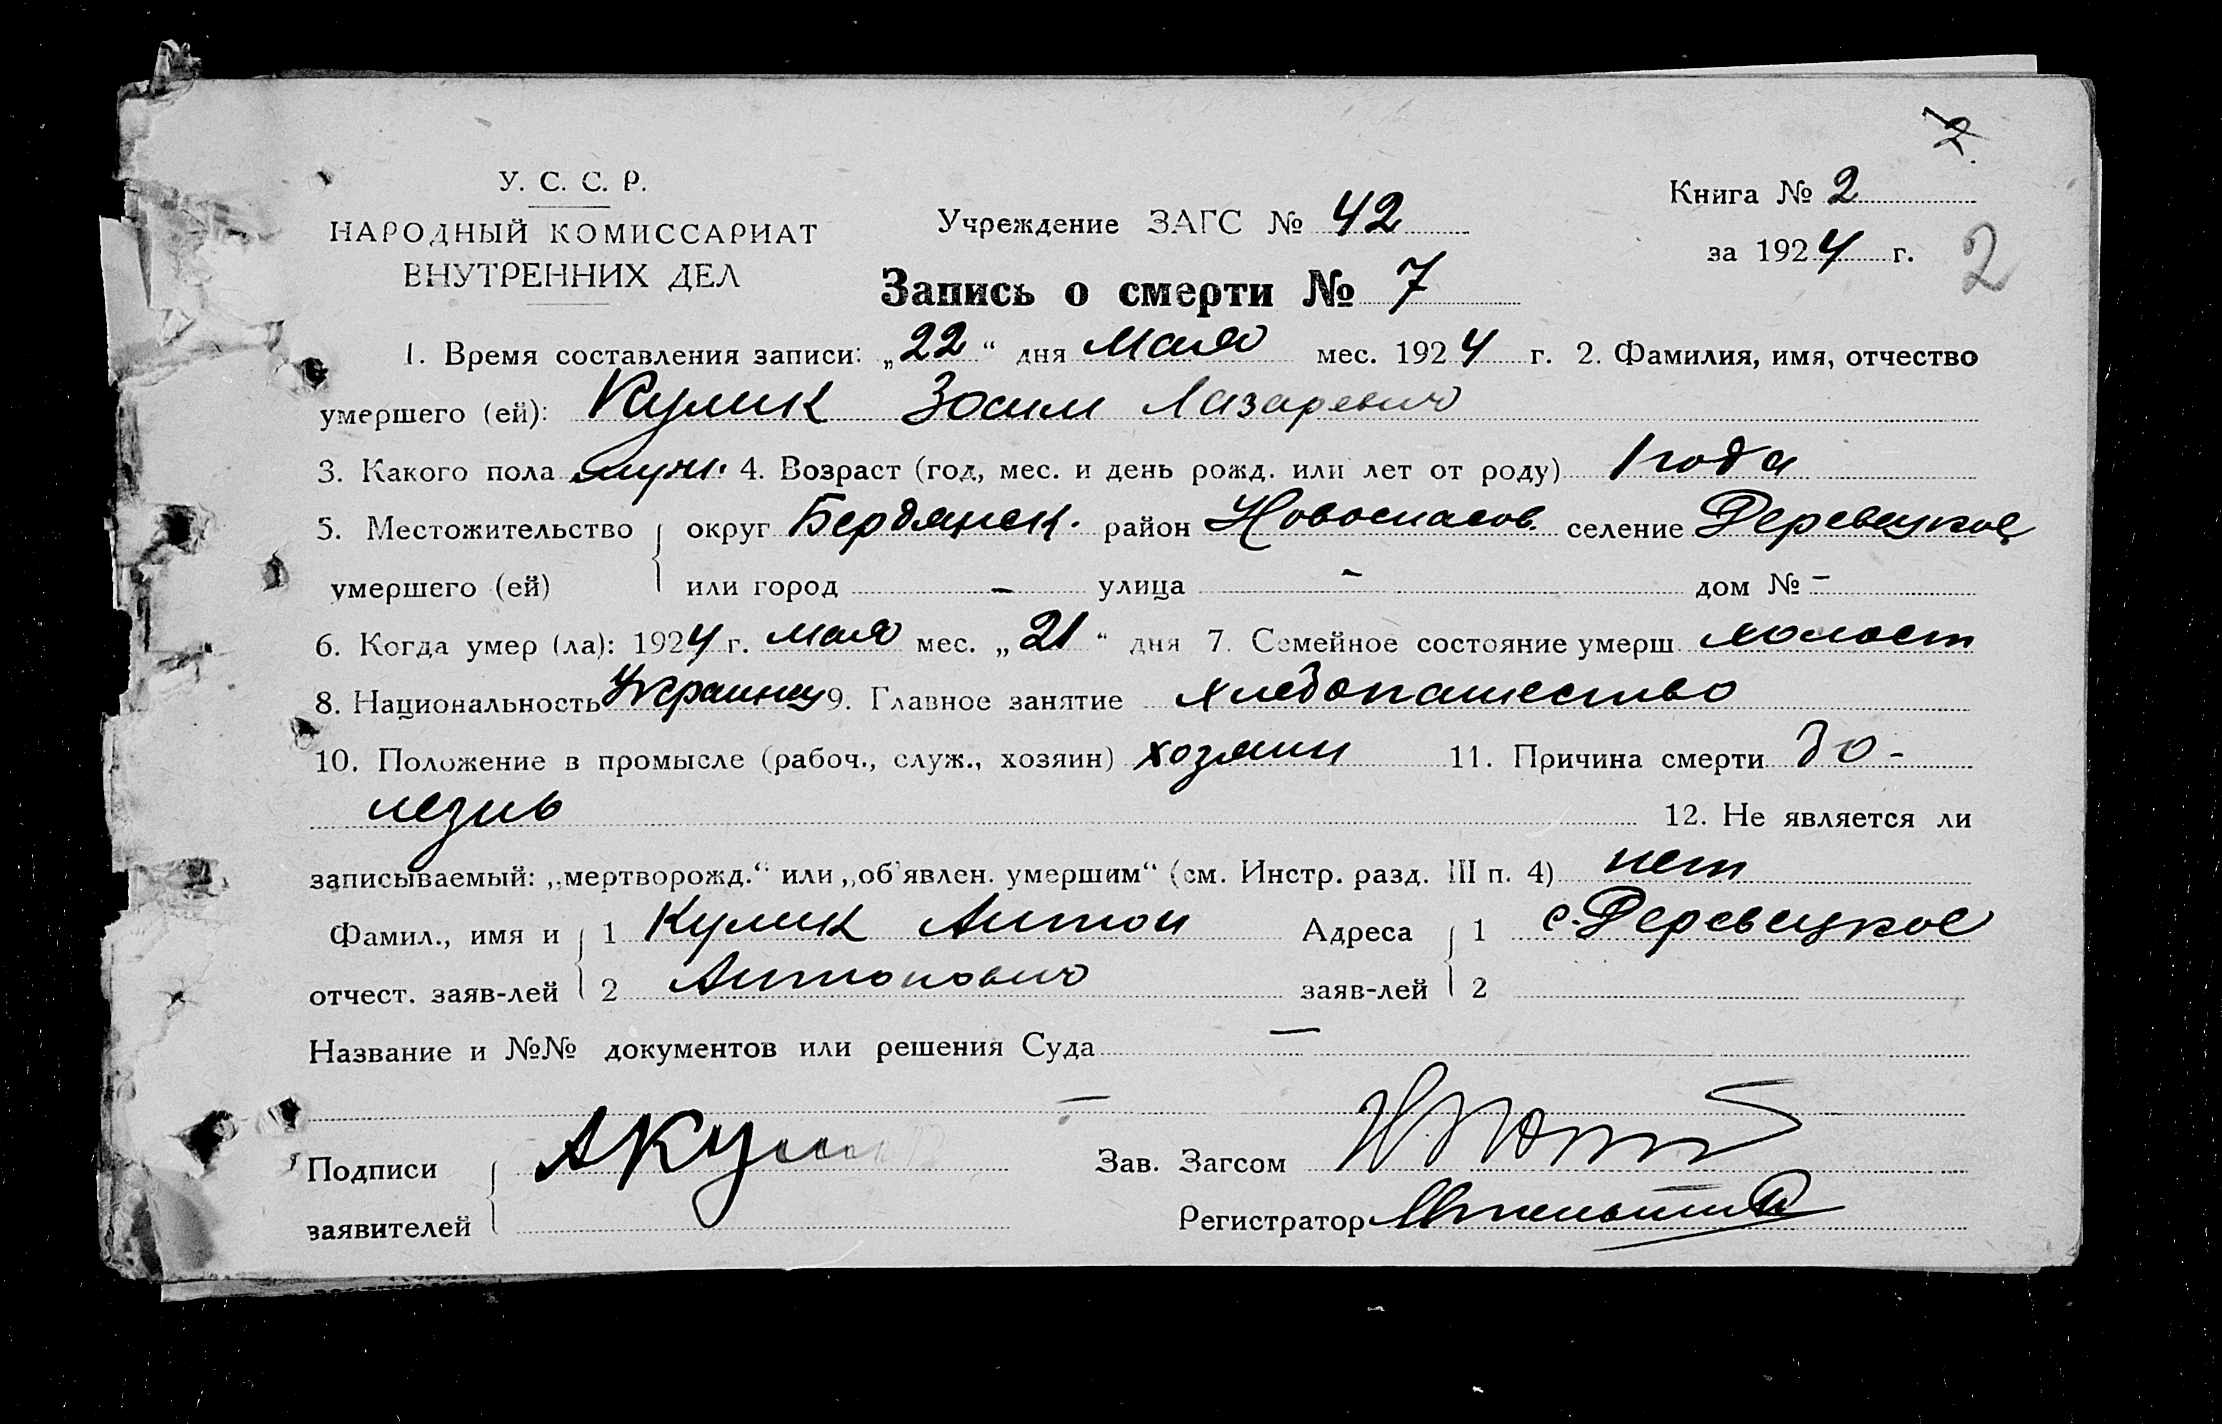 У. С. С. Р.
НАРОДНЫЙ КОМИССАРИАТ
ВНУТРЕННИХ ДЕЛ
Учреждение ЗАГС № 42
Книга № 2
за 1924 г.
2
Запись о смерти № 7
1. Время составления записи: „22“ дня Мая мес. 1924 г. 2. Фамилия, имя, отчество
умершего (ей): Кулик Зосим Лазаревич
3. Какого пола муж. 4. Возраст (год, мес. и день рожд. или лет от роду) 1 года
5. Местожительство округ Бердянск. район Новоспасов. селение Деревецкое
умершего (ей) или город – улица – дом № –
6. Когда умер (ла): 1924 г. мая мес. „21“ дня 7. Семейное состояние умерш. холост
8. Национальность Украинец 9. Главное занятие хлебопашество
10. Положение в промысле (рабоч., служ., хозяин) хозяин 11. Причина смерти бо-
лезнь 12. Не является ли
записываемый: „мертворожд.“ или „об'явлен. умершим“ (см. Инстр. разд. III п. 4) нет
Фамил., имя и 1 Кулик Антон Адреса 1 с. Деревецкое
отчест. заяв-лей 2 Антонович заяв-лей 2
Название и №№ документов или решения Суда –
–
Подписи АКулик Зав. Загсом
заявителей Регистратор